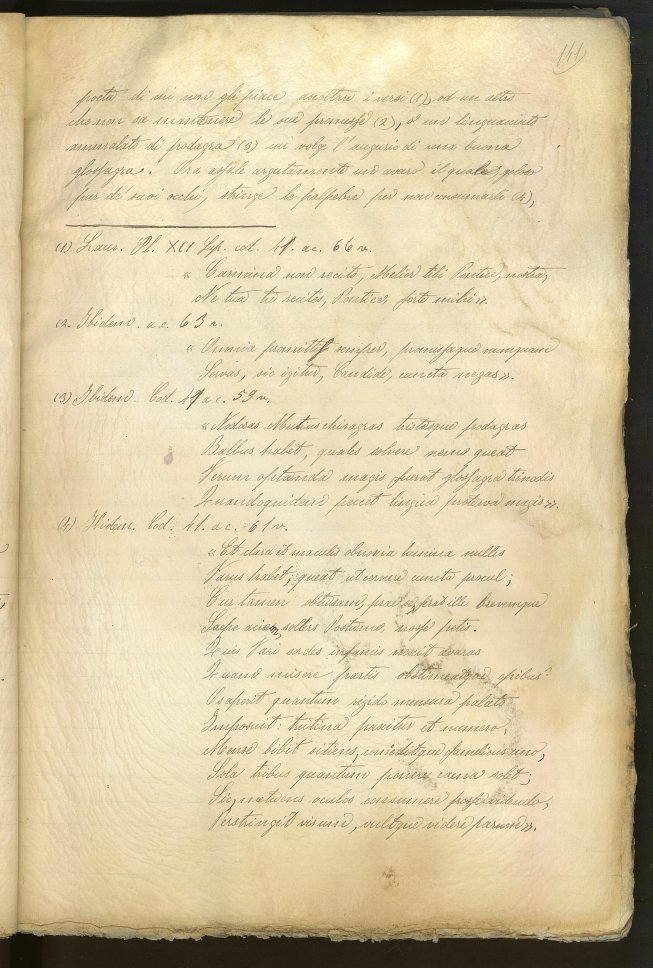 141
poeta di cui non gli piace ascoltare i versi (1), od un altro
che non sa mantenere le sue promesse (2), o un linguacciuto
ammalato di podagra (3) cui volge l'augurio di una buona
glossagra. Ora assale argutamente un avaro il quale, geloso
pur de' suoi occhi, stringe le palpebre per non consumarli (4),
(1) Laur. Pl. XCI Sup. cod. 41. ac. 66 v.
« Carmina non recito; Melior tibi Pontice, nostra,
Ne tua tu recites, Pontice, forte mihi ».
(2. Ibidem. ac. 63 r.
« Omnia promittis semper, promissaque numquam
Servas; sic igitur, Candide, cuncta negas ».
(3) Ibidem. Cod. 19 ac. 59 v.
« Nodosas Mutius chiragras tristesque podagras
Balbus habet, quales solvere nemo queat
Verum optanda magis fuerat glossagra trinodis
Quandoquidem peccet lingua proterva magis ».
(4) Ibidem. Cod. 41. ac. 61 v.
« Et clara et maculis obnoxia lumina nullis
Varus habet, queat ut cernere cuncta procul;
Cur tamen obtusam ille brevemque
Saepe aciem, sollers Postume, nosse petis.
Quis Vari sordes infamis nescit avaras
Quam misere partis opibus?
Os aperit quantum rigido mensura palato
Imposuit: trutina pascitur et numero,
Mense bibit sitiens, comeditque famelicus uno,
Sola tribus quantum ponere caena solet;
Sic, metuens oculos consumere
Perstringit visum, vultque videre parum ».